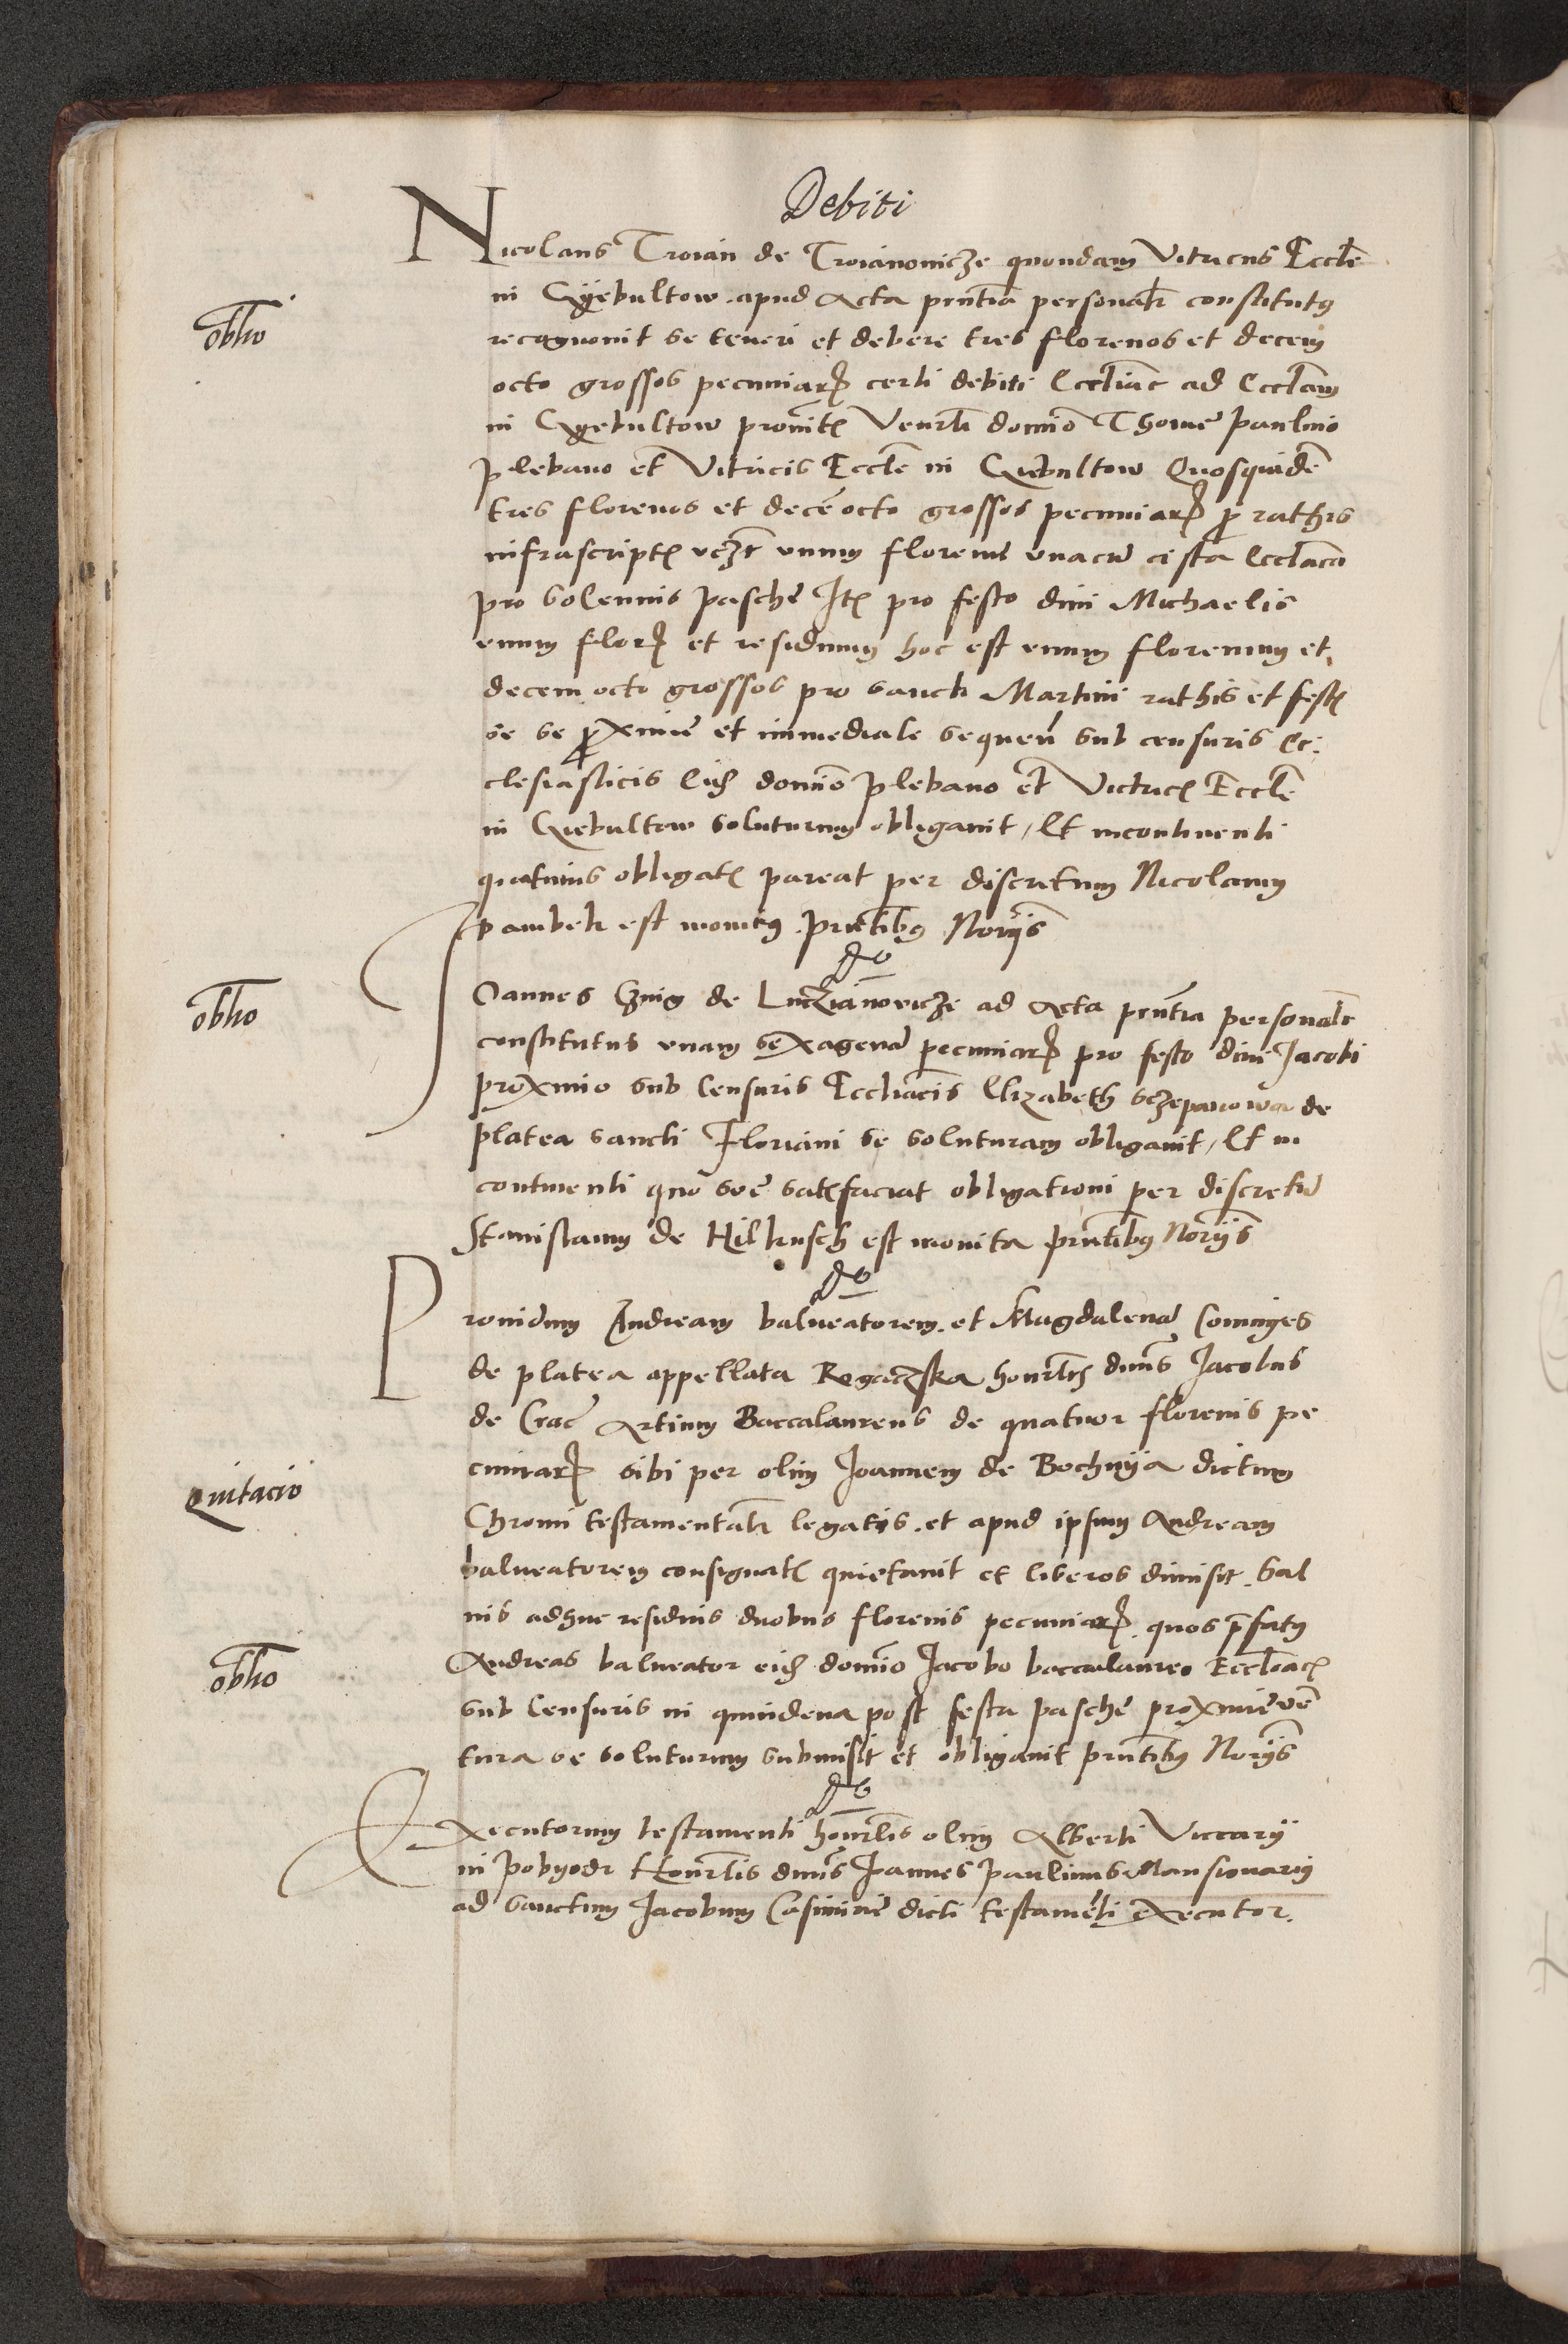 Debiti
Nicolaus Troian de Troianowicze quondam Vitricus Eccle̅
in Gyebultow apud Acta prn̅tia personalr̅ constitutus
obl̅io
recognouit se teneri et debere tres florenos et decem
octo grossos pecuniar̅ certi debiti Eccl̅iac̅ ad Eccl̅am
in Gyebultow Venrl̅i domino Thome paulino
plebano et Vitricis Eccle̅ in Gyebultow Quosquide̅
tres florenos et dece̅ octo grossos pecuniar̅ p̅ rathis
infrascript vczt̅ unum florenu̅ unacu̅ cista
pro solennis pasche It pro festo diui Michaelis
unum flor et residuum hoc est unum florenum et
decem octo grossos pro sancti Martini rathis et fest
se se p̅xime et immediate sequen̅ sub censuris Ec:
clesiasticis domino plebano et Victric Eccle̅
in Gyebultow soluturum obligauit / Et incontinenti
quatinus obligat pareat per discretum Nicolaum
est monitus prn̅tibus Norijs
do
obl̅io
Joannes de Luczianovicze ad Acta prn̅tia personalr̅
constitutus unam sexagena̅ pecuniar̅ pro festo diui Jacobi
proximo sub Censuris Eccl̅iacis Elizabeth Sczepanowa de
platea sancti Floriani se soluturam obligauit / Et in
continenti quo̅ sue satisfaciat obligationi per discretu̅
Stanislaum de Hilkusch est monita prn̅tibus Norijs
do
Prouidum Andream balneatorem et Magdalena̅ Coniuges
de platea appellata Rogaczska honrl̅is dnu̅s Jacobus
de Crac̅ Artium Baccalaureus de quatuor florenis pe
quitacio
cuniar̅ sibi per olim Joannem de Bochnija dictum
Chromi testamentalr̅ legatis et apud ipsum Andream
balneatorem consignat quietauit et liberos dimisit Sal
uis adhuc residuis duobus florenis pecuniar̅ quos p̅fatus
obl̅io
Andreas balneator domino Jacobo baccalaureo Eccl̅iac
sub Censuris in quindena post festa pasche proxime ve̅
tura se soluturum submisit et obligauit prn̅tibus Norijs
do
Executorum testamenti honrl̅is olim Alberti Viccarij
in pobyedr Honrl̅is dnu̅s Joannes paulinus Mansionarius
ad Sanctum Jacobum Casimirie dicti testame̅ti Executor.